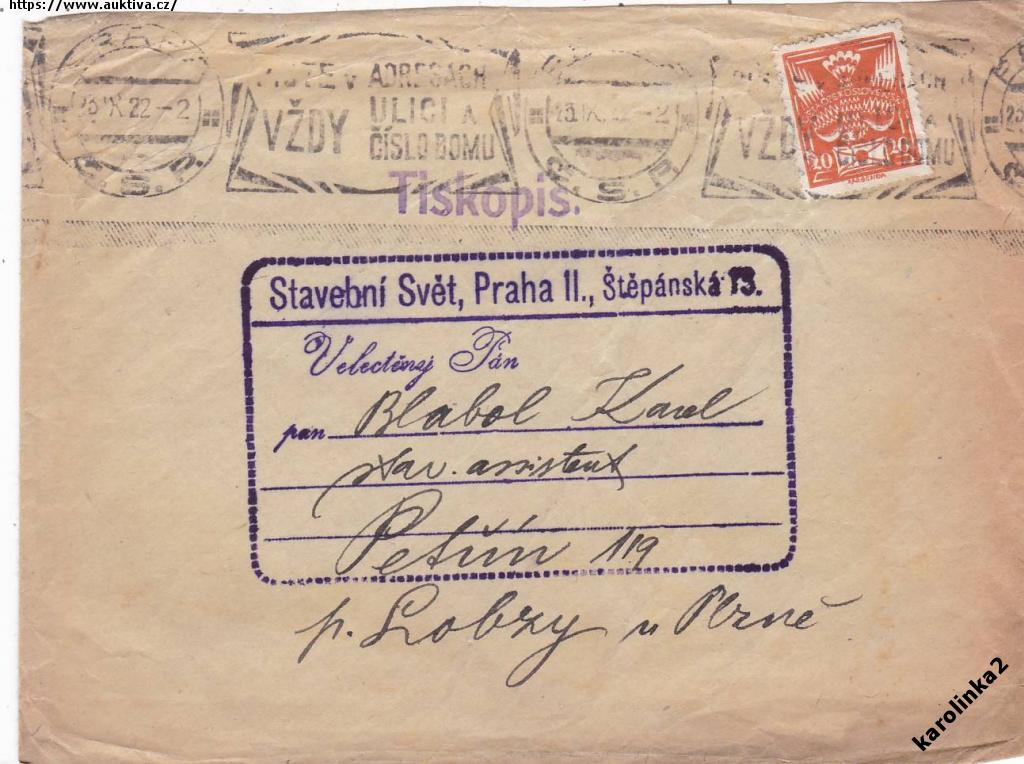 https://www.auktiva.cz/
23 IX 22 -2
Č. S. R.
PIŠTE V ADRESACH
VŽDY ULICI A
ČÍSLO DOMU
Č. S. R.
VŽDY
20 20
Tiskopis.
Stavební Svět, Praha II., Štěpánská
Velectěný Pán
pan Blabol Karel
stav. assistent
Petřín 119
p. Lobzy u Plzně
karolinka2